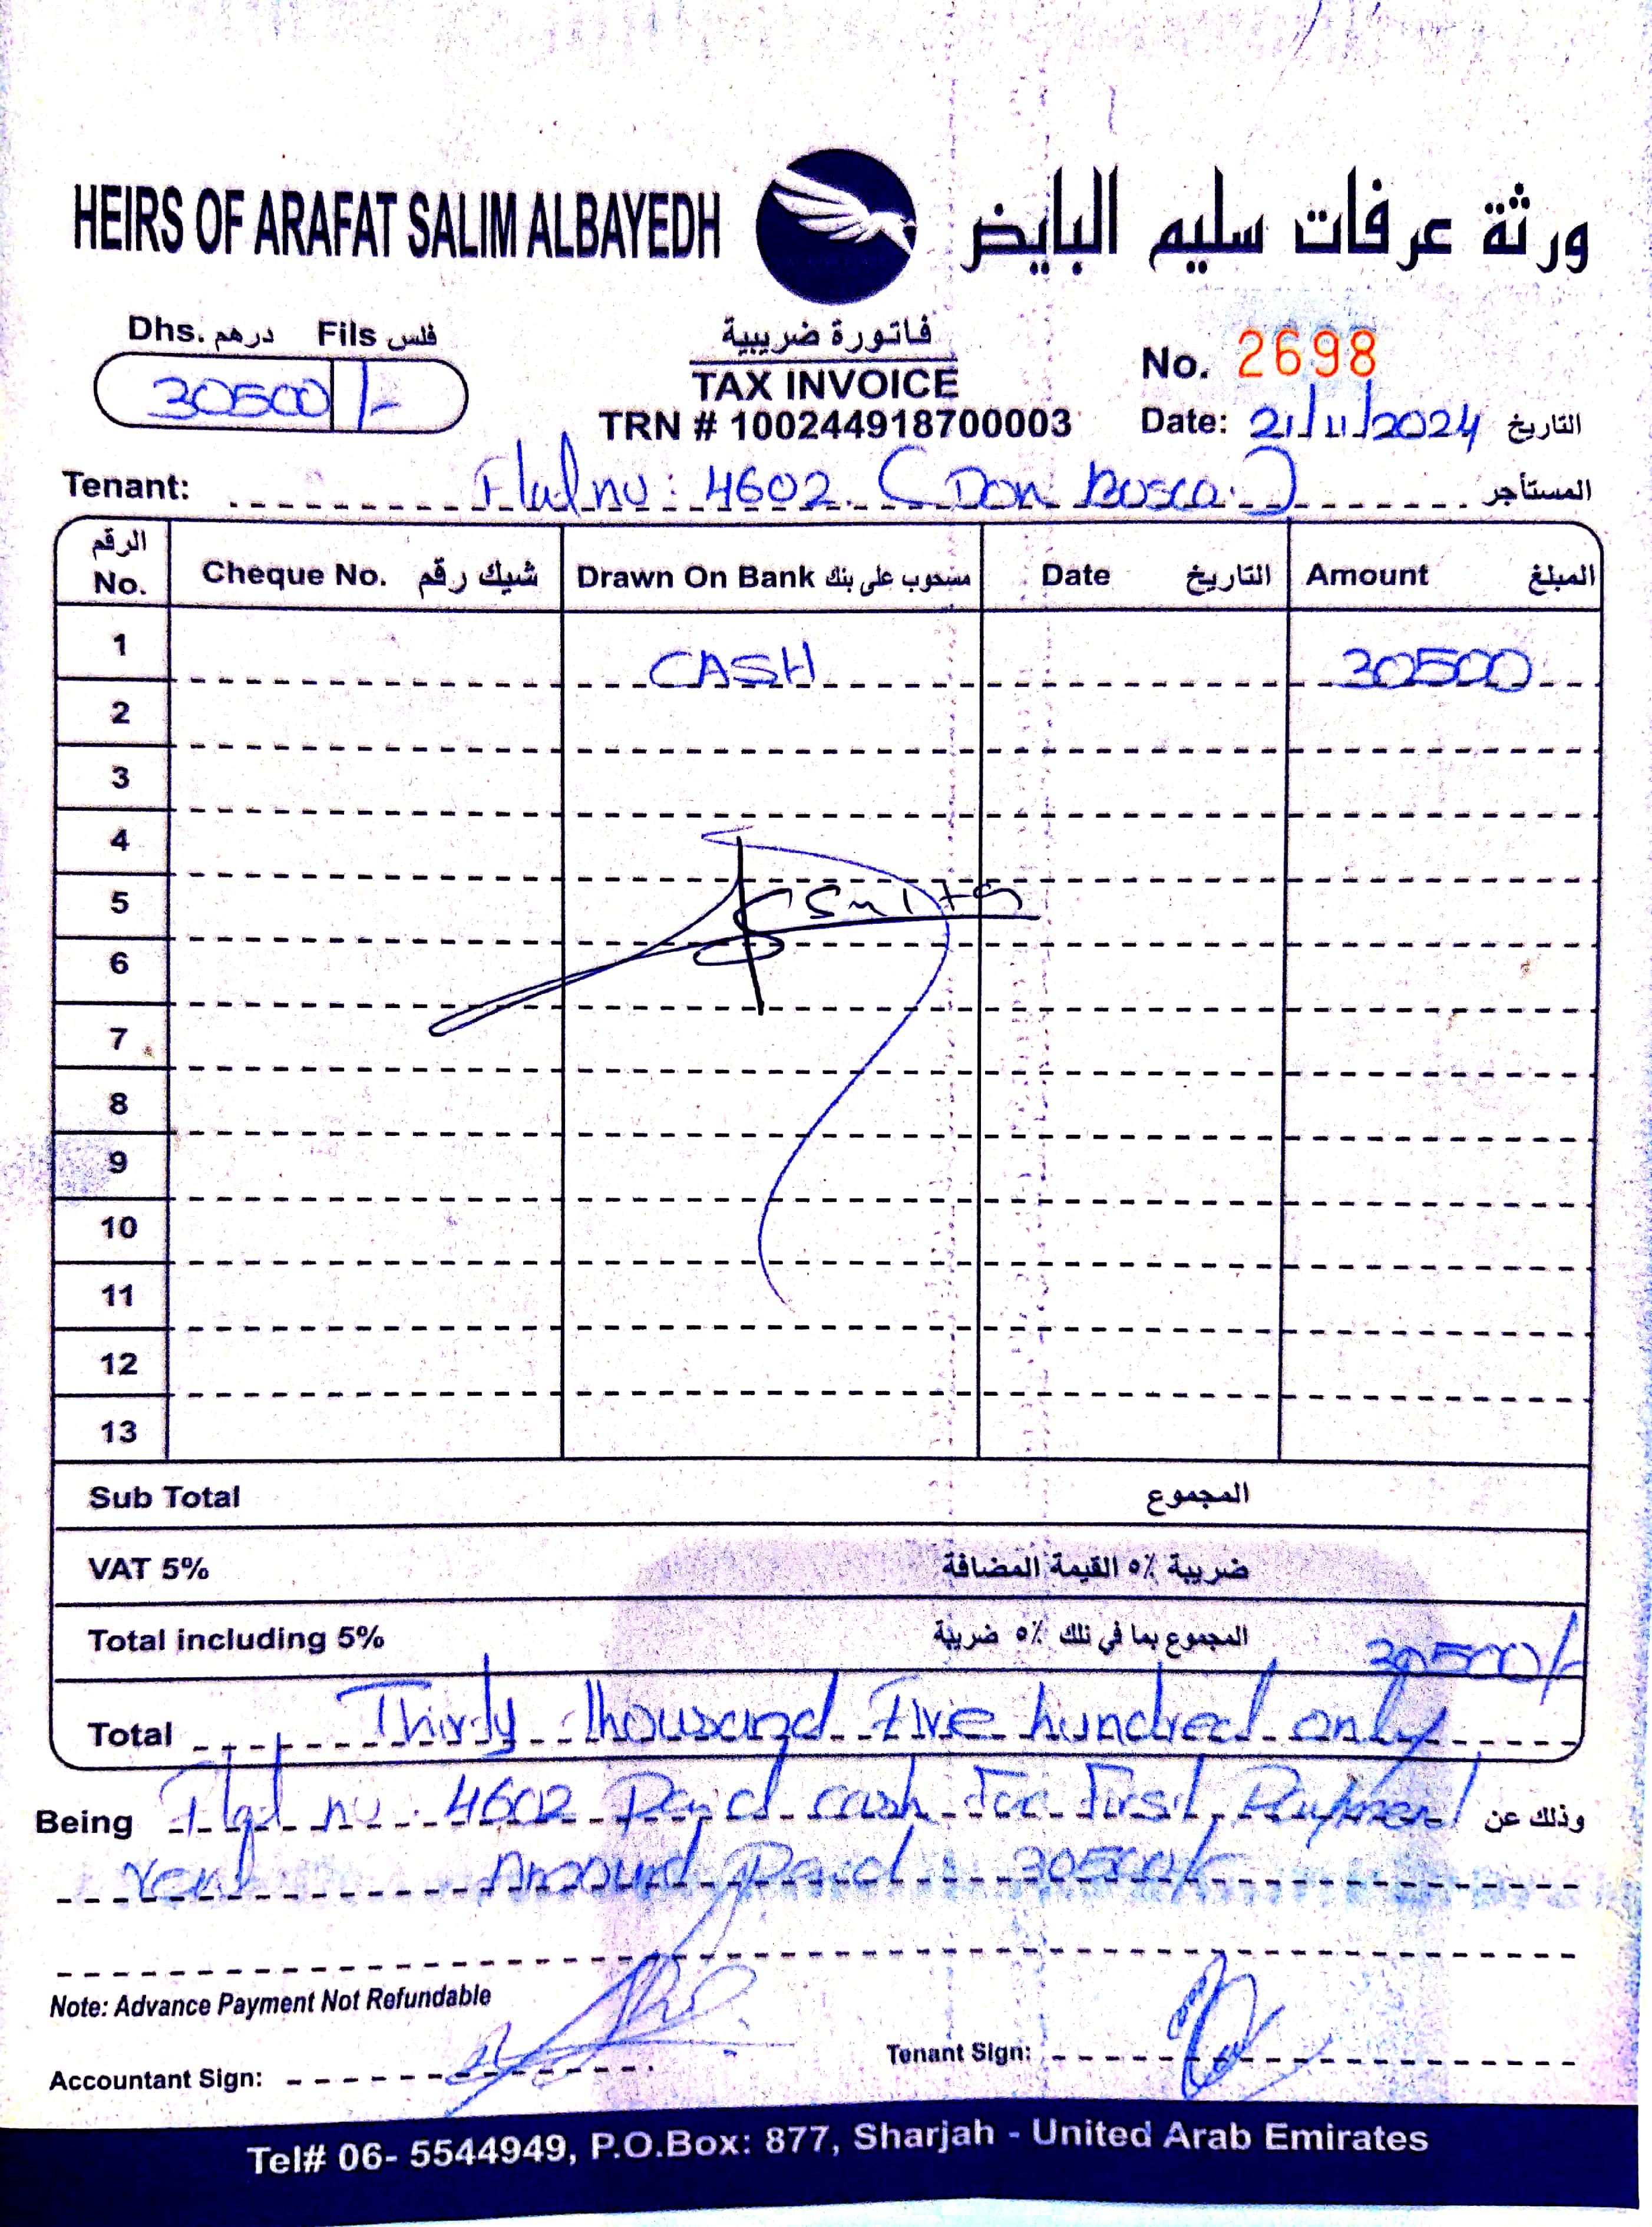 HEIRS OF ARAFAT SALIM ALBAYEDH ورثة عرفات سليم البايض
Dhs. درهم Fils فلس
30500 /-
فاتورة ضريبية
TAX INVOICE
TRN # 100244918700003
No. 2698
Date: 21/11/2024 التاريخ
Tenant: Flat no: 4602. (Don Bosco.) المستأجر
الرقم No. Cheque No. شيك رقم Drawn On Bank مسحوب على بنك Date التاريخ Amount المبلغ
1 CASH 30500
2
3
4
5
6
7
8
9
10
11
12
13
Sub Total المجموع
VAT 5% ضريبة ٥٪ القيمة المضافة
Total including 5% المجموع بما في ذلك ٥٪ ضريبة 30500/-
Total Thirdy thousand Five hundred only
Being Flat no. 4602 Paid cash For First Payment وذلك عن
Rent Amount Paid 30500/-
Note: Advance Payment Not Refundable
Accountant Sign:
Tenant Sign:
Tel# 06- 5544949, P.O.Box: 877, Sharjah - United Arab Emirates